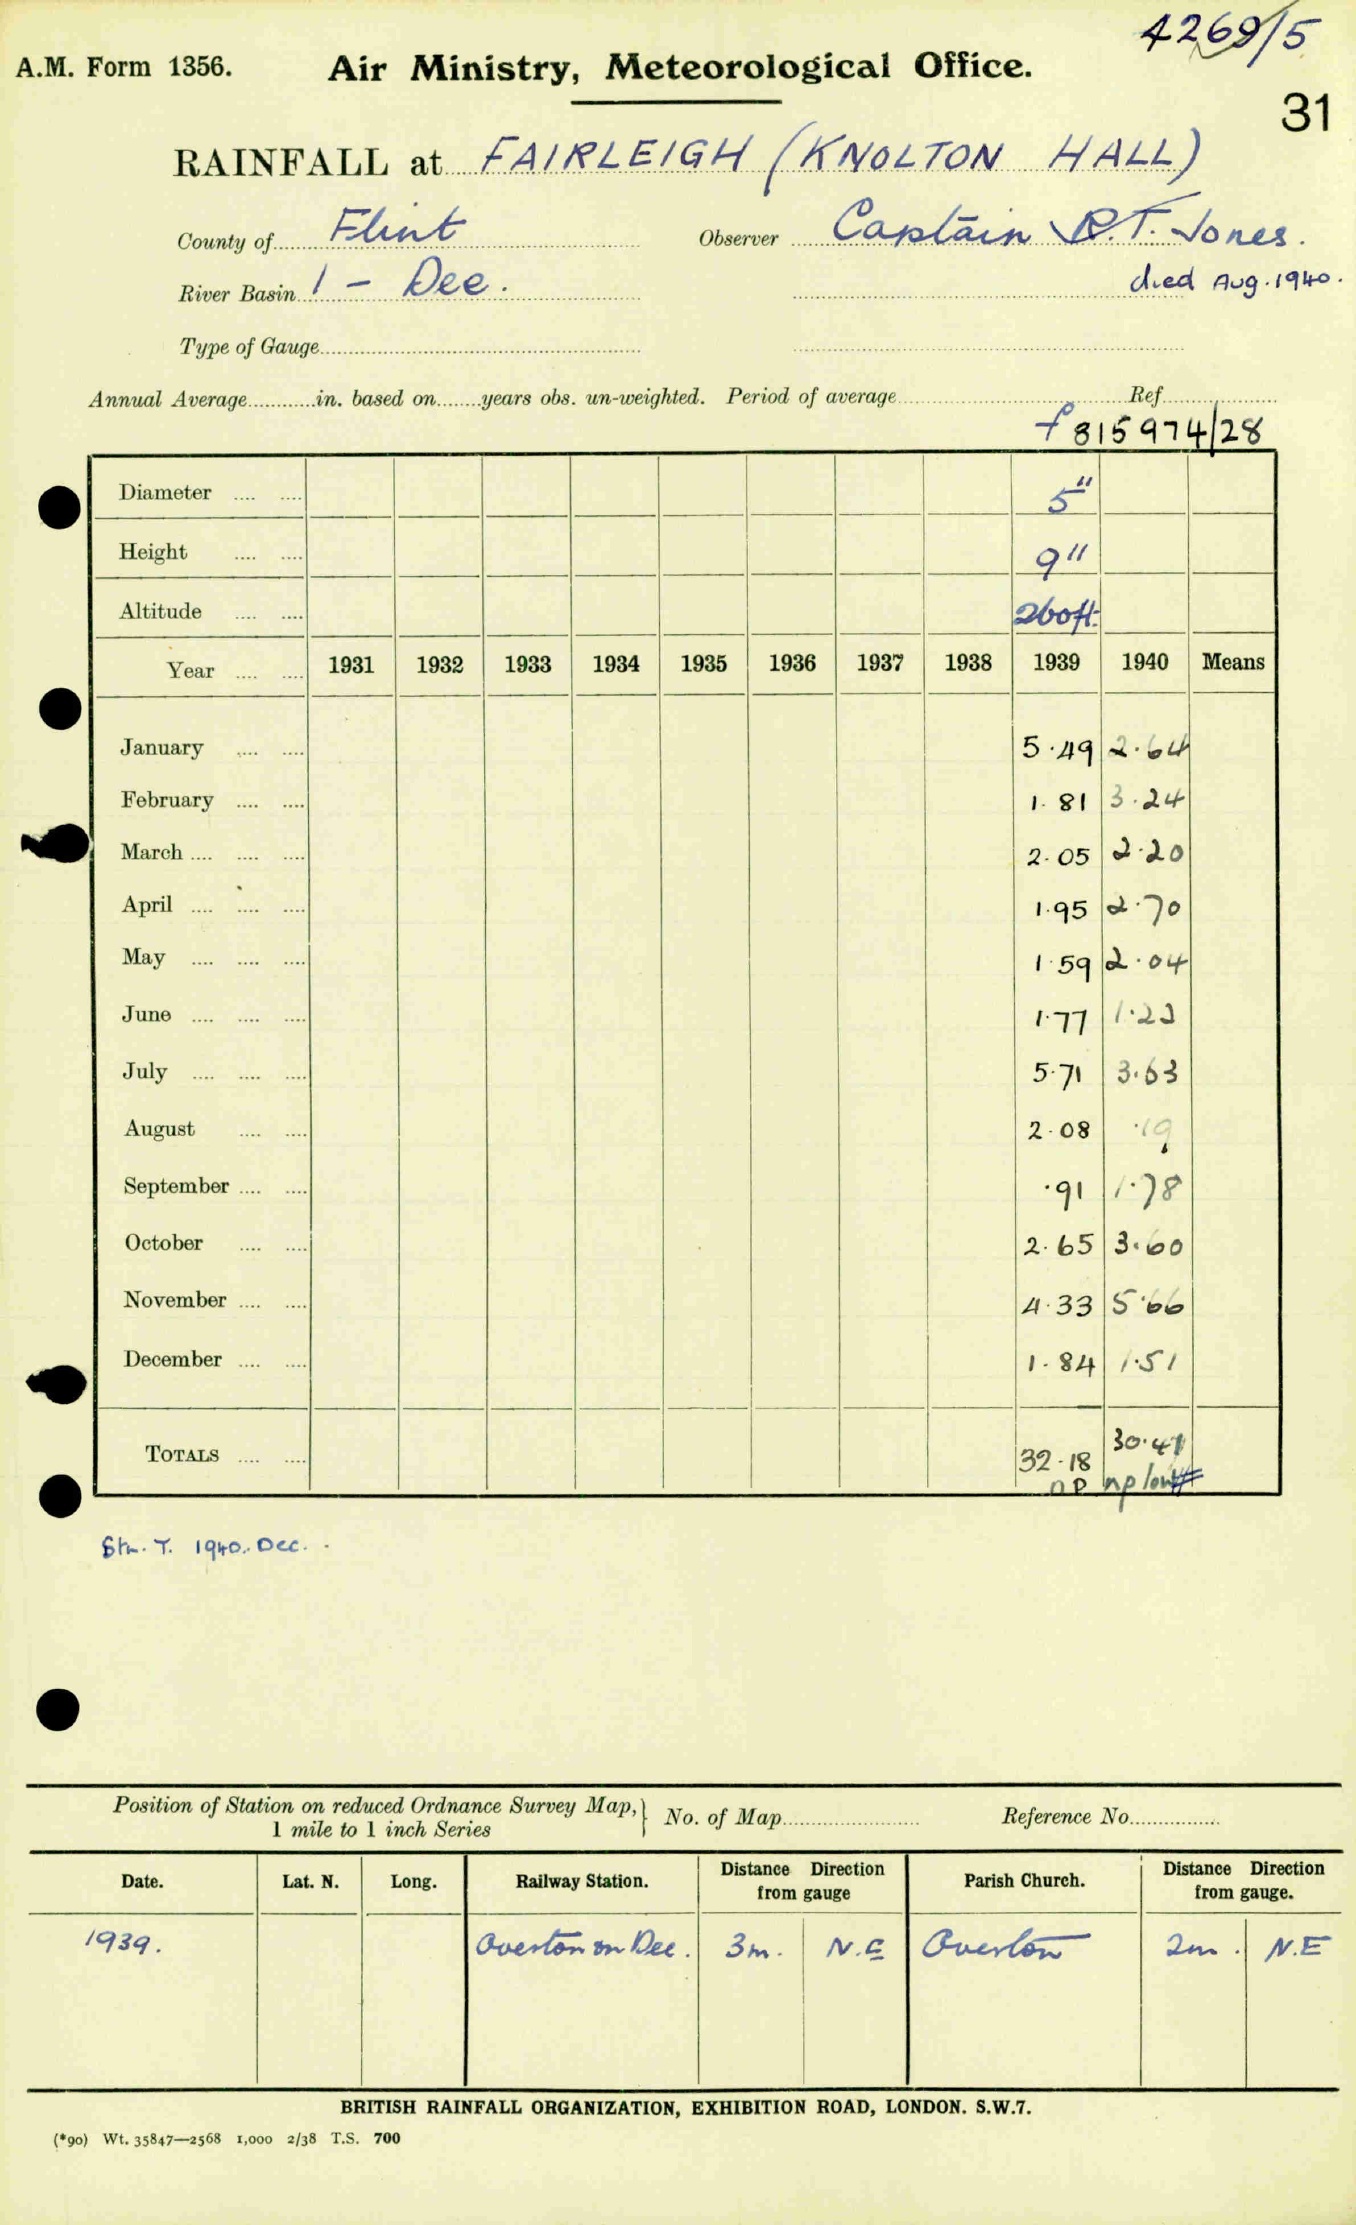 4269/5
A.M. Form 1356. Air Ministry, Meteorological Office.
31
RAINFALL at FAIRLEIGH (KNOLTON HALL)
County of Flint Observer Captain R.T. Jones.
River Basin 1 - Dee. died Aug. 1940.
Type of Gauge
Annual Average in. based on years obs. un-weighted. Period of average Ref
f 815974/28
Diameter 5"
Height 9"
Altitude 260ft.
Year 1931 1932 1933 1934 1935 1936 1937 1938 1939 1940 Means
January 5.49 2.64
February 1.81 3.24
March 2.05 2.20
April 1.95 2.70
May 1.59 2.04
June 1.77 1.22
July 5.71 3.63
August 2.08 .19
September .91 1.78
October 2.65 3.60
November 4.33 5.66
December 1.84 1.51
TOTALS 32.18 30.41
np np low
Stn. T. 1940. Dec.
Position of Station on reduced Ordnance Survey Map, 1 mile to 1 inch Series } No. of Map Reference No.
Date. Lat. N. Long. Railway Station. Distance Direction from gauge Parish Church. Distance Direction from gauge.
1939. Overton on Dee. 3m. N.E Overton 2m. N.E
BRITISH RAINFALL ORGANIZATION, EXHIBITION ROAD, LONDON. S.W.7.
(*90) Wt. 35847—2568 1,000 2/38 T.S. 700